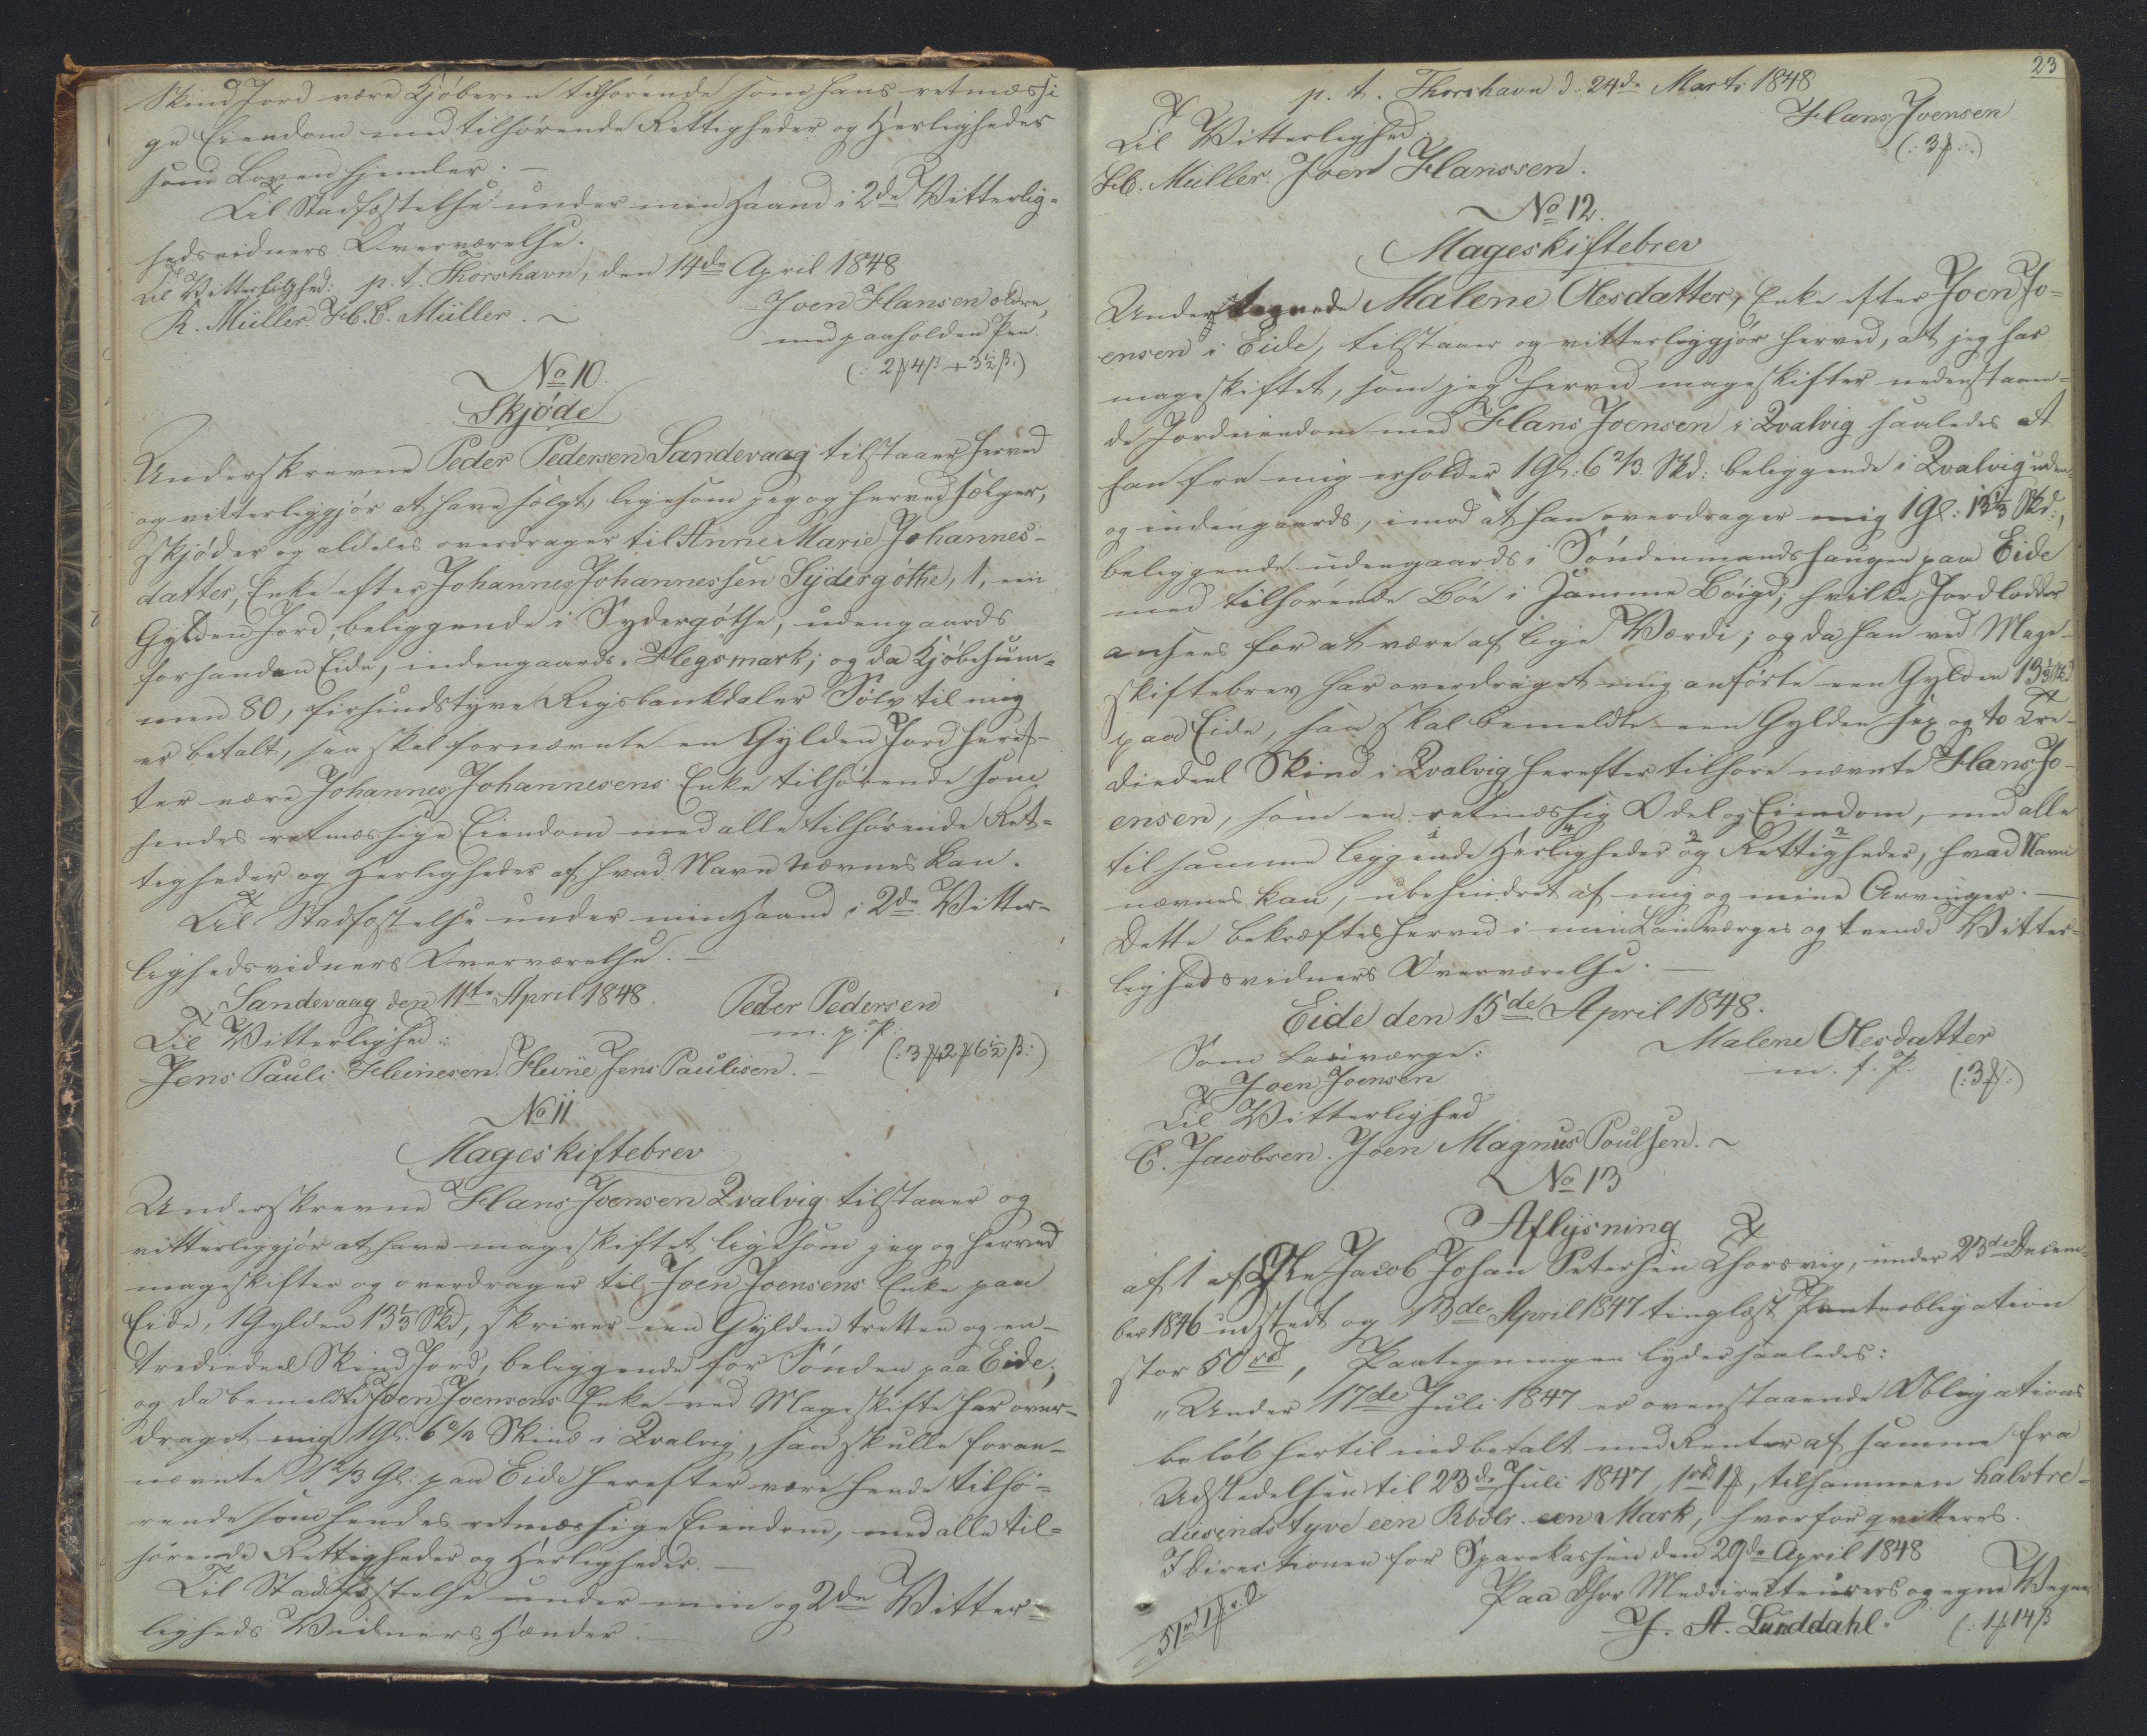 Skind Jord være Kjøberen tilhørende som hans retmæssi
ge Eiendom med tilhørende Rettigheder og Herligheder
som Loven hjemler. —
Til Stadfæstelse under min Haand i 2de Vitterlig-
hedsvidners Overværelse.
Til Vitterlighed: p. t. Thorshavn, den 14de April 1848
K. Müller. H. C. Müller. ~
Joen Hansen ældre,
med paaholden Pen.
(: 2 ₰ 4 β + 3½ β.)
No 10.
Skjøde
Underskrevne Peder Pedersen Sandevaag tilstaaer herved
og vitterliggjør at have solgt, ligesom jeg og herved sælger,
skjøder og aldeles overdrager til Anne Marie Johannes-
datter, Enke efter Johannes Johannessen Sydergøthe, 1, een
Gylden Jord, beliggende i Sydergøthe, udengaards
forhanden Eide, indengaards i Flegsmark; og da Kjøbesum-
men 80, firsindstyve Rigsbankdaler Sølv til mig
er betalt, saa skal fornævnte en Gylden Jord heref-
ter være Johannes Johannesens Enke tilhørende som
hendes retmæssige Eiendom med alle tilhørende Ret-
tigheder og Herligheder af hvad Navn nævnes kan.
Til Stadfæstelse under min Haand i 2de Vitter-
lighedsvidners Overværelse. —
Sandevaag den 11te April 1848.
Peder Pedersen
m. p. P.
Til Vitterlighed:
(: 3 ₰ 42 ₰ 6½ β :)
Jens Pauli Heinesen. Heine Jens Paulisen. —
No 11
Mageskiftebrev
Underskrevne Hans Joensen Qvalvig tilstaaer og
vitterliggjør at have mageskiftet ligesom jeg og herved
mageskifter og overdrager til Joen Joensens Enke paa
Eide, 1 Gylden 13⅓ Skd, skriver een Gylden tretten og en-
trediedeel Skind Jord, beliggende for Sønden paa Eide;
og da bemeldte Joen Joensens Enke ved Mageskifte har over-
draget mig 1 Gl: 6⅔ Skind i Qvalvig, saa skulle foran-
nævnte 1⅔ Gl: paa Eide herefter være hende tilhø-
rende som hendes retmæssige Eiendom, med alle til-
hørende Rettigheder og Herligheder. —
Til Stadfæstelse under min og 2de Vitter-
ligheds Vidners Hænder. —
23
p. t. Thorshavn d: 24de Marti 1848
Til Vitterlighed:
Hans Joensen
(: 3 ₰ :)
H. C. Müller. Joen Hanssen.
No 12.
Mageskiftebrev
Undertegnede Malene Olesdatter, Enke efter Joen Jo-
ensen i Eide, tilstaaer og vitterliggjør herved, at jeg har
mageskiftet, som jeg herved mageskifter nedenstaaen-
de Jordeiendom med Hans Joensen i Qvalvig saaledes at
han fra mig erholder 1 Gl: 6⅔ Skd: beliggende i Qvalvig uden-
og indengaards, imod at han overdrager mig 1 Gl: 13⅓ Skd:,
beliggende udengaards i Søndenmandshaugen paa Eide
med tilhørende Bøe i samme Bøigd; hvilke Jordlodder
ansees for at være af lige Værdi; og da han ved Mage-
skiftebrev har overdraget mig anførte een Gylden 13⅓ Skd
paa Eide, saa skal bemeldte een Gylden sex og to Tre-
diedeel Skind i Qvalvig herefter tilhøre nævnte Hans Jo-
ensen, som en retmæssig Odel og Eiendom, med alle
til samme liggende Herligheder og Rettigheder, hvad Navn
nævnes kan, ubehindret af mig og mine Arvinger. —
Dette bekræftes herved i min Laugværges og tvende Vitter-
lighedsvidners Overværelse. —
Eide den 15de April 1848.
Som Laugværge:
Malene Olesdatter
m. f. P.
(: 3 ₰ :)
Joen Joensen
Til Vitterlighed
C. Jacobsen. Joen Magnus Poulsen. ~
No 13
Aflysning
af 1 af Jacob Johan Petersen Thorsvig, under 23de Decem-
ber 1846 udstedt og 13de April 1847 tinglæst Panteobligation
stor 50 rd, Paategningen lyder saaledes:
"Under 17de Juli 1847 er ovenstaaende Obligations
beløb hertil indbetalt med Renter af samme fra
Udstedelsen til 23de Juli 1847, 1 rd 1 ₰, tilsammen halvtre-
diesindstyve een Rbdlr. een Mark, hvorfor qvitteres.
I Directionen for Sparekassen den 29de April 1848
Paa Meddirecteurers og egne Vegne
51 rd 1 ₰ r. d
J. A. Lunddahl.
(: 1 ₰ 14 β